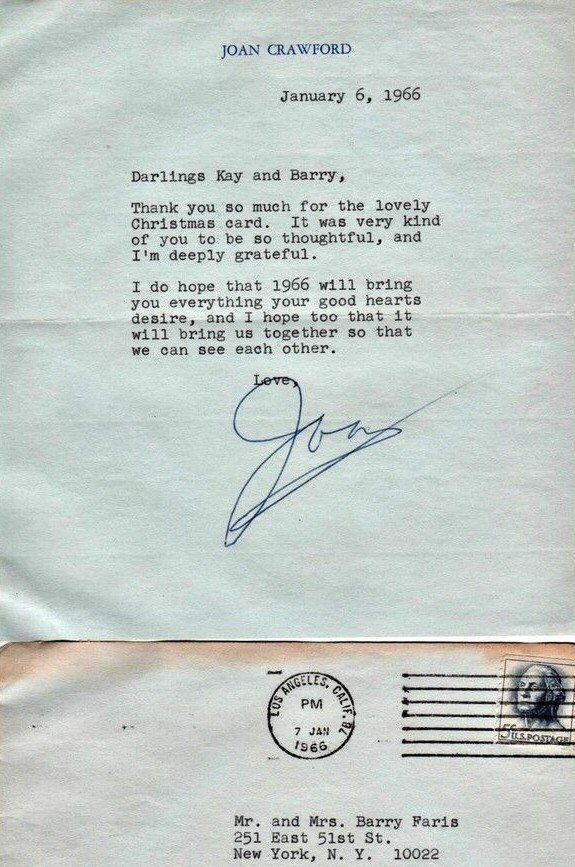 JOAN CRAWFORD
January 6, 1966
Darlings Kay and Barry,
Thank you so much for the lovely
Christmas card.  It was very kind
of you to be so thoughtful, and
I'm deeply grateful.
I do hope that 1966 will bring
you everything your good hearts
desire, and I hope too that it
will bring us together so that
we can see each other.
Love,
Joan
LOS ANGELES, CALIF.
PM
7 JAN
1966
5c U.S. POSTAGE
Mr. and Mrs. Barry Faris
251 East 51st St.
New York, N. Y.  10022